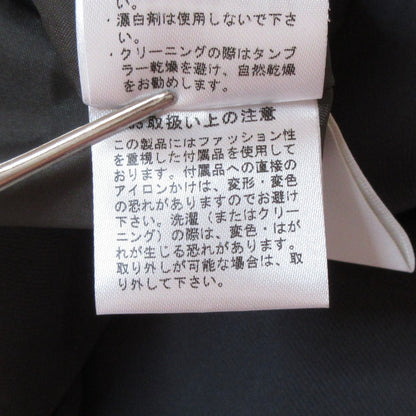 い。
・漂白剤は使用しないで下さ
い。
・クリーニングの際はタンブ
ラー乾燥を避け、自然乾燥
をお勧めします。
お取扱い上の注意
この製品にはファッション性
を重視した付属品を使用して
おります。付属品への直接の
アイロンかけは、変形・変色
の恐れがありますのでお避け
下さい。洗濯（またはクリー
ニング）の際は、変色・はが
れが生じる恐れがあります。
取り外しが可能な場合は、取
り外して下さい。